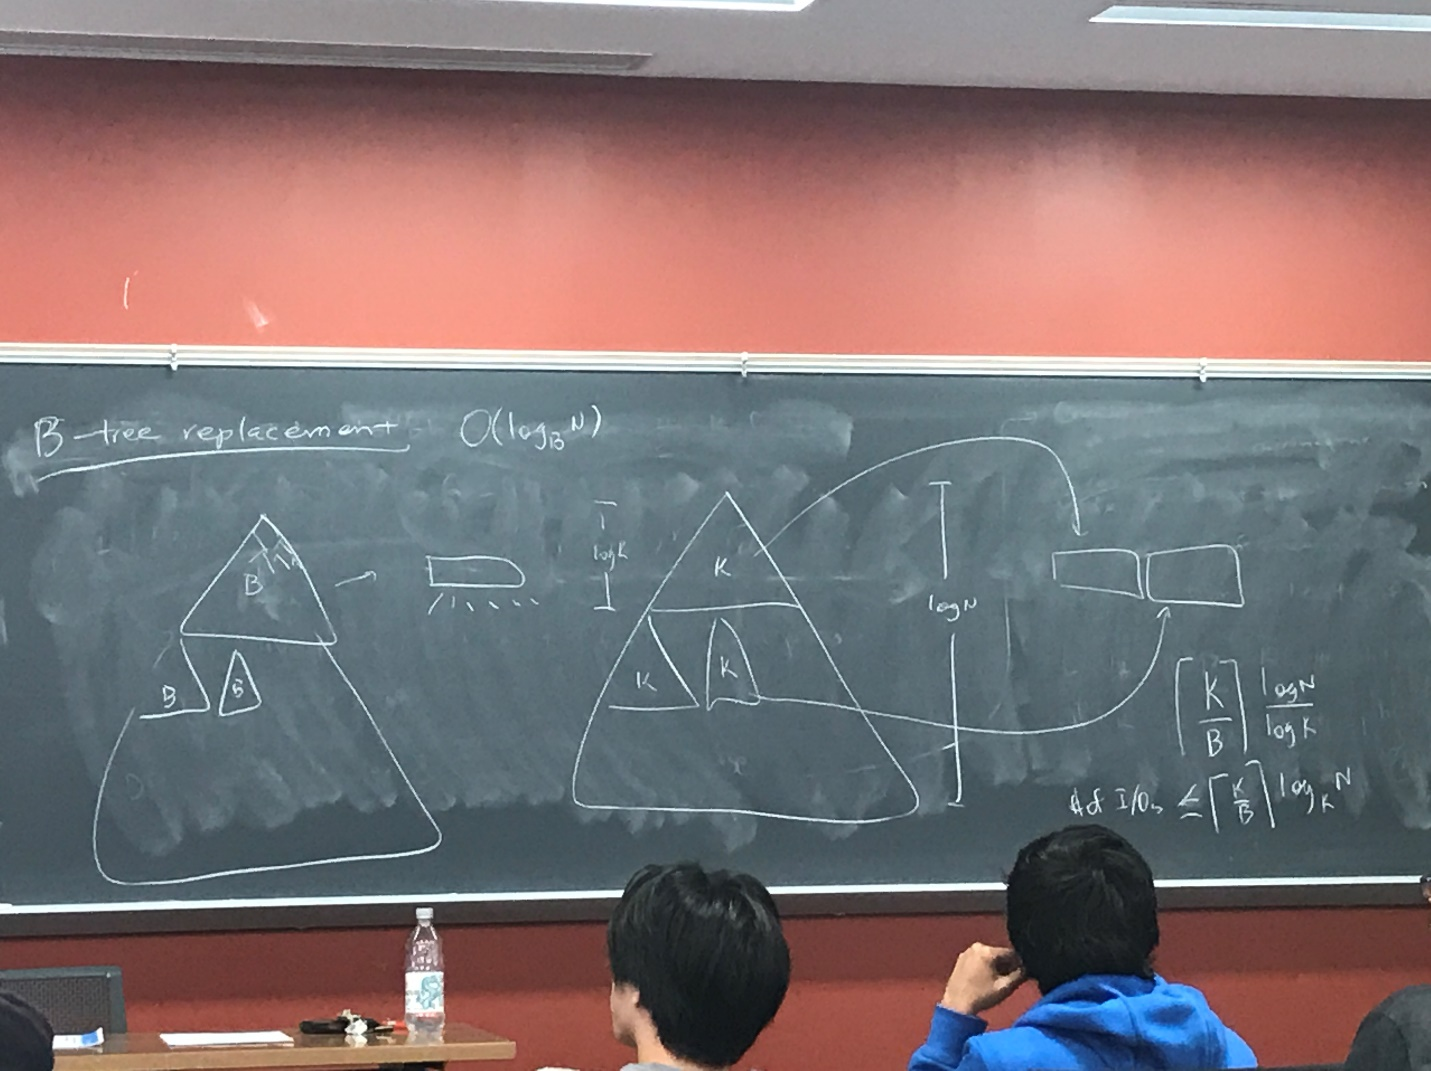 B-tree replacement O(log_B N)
B
B
B
log K
K
K
K
log N
⌈K/B⌉ log N / log K
# of I/Os ≤ ⌈K/B⌉ log_K N